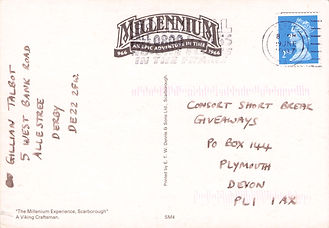 MILLENNIUM
966 AN EPIC ADVENTURE IN TIME 1966
GILLIAN TALBOT
5 WEST BANK ROAD
ALLESTREE
DERBY
DE22 2FW.
CONSORT SHORT BREAK
GIVEAWAYS
PO BOX 144
PLYMOUTH
DEVON
PL1 1AX
Printed by E. T. W. Dennis & Sons Ltd., Scarborough
"The Millenium Experience, Scarborough"
A Viking Craftsman.
SM4